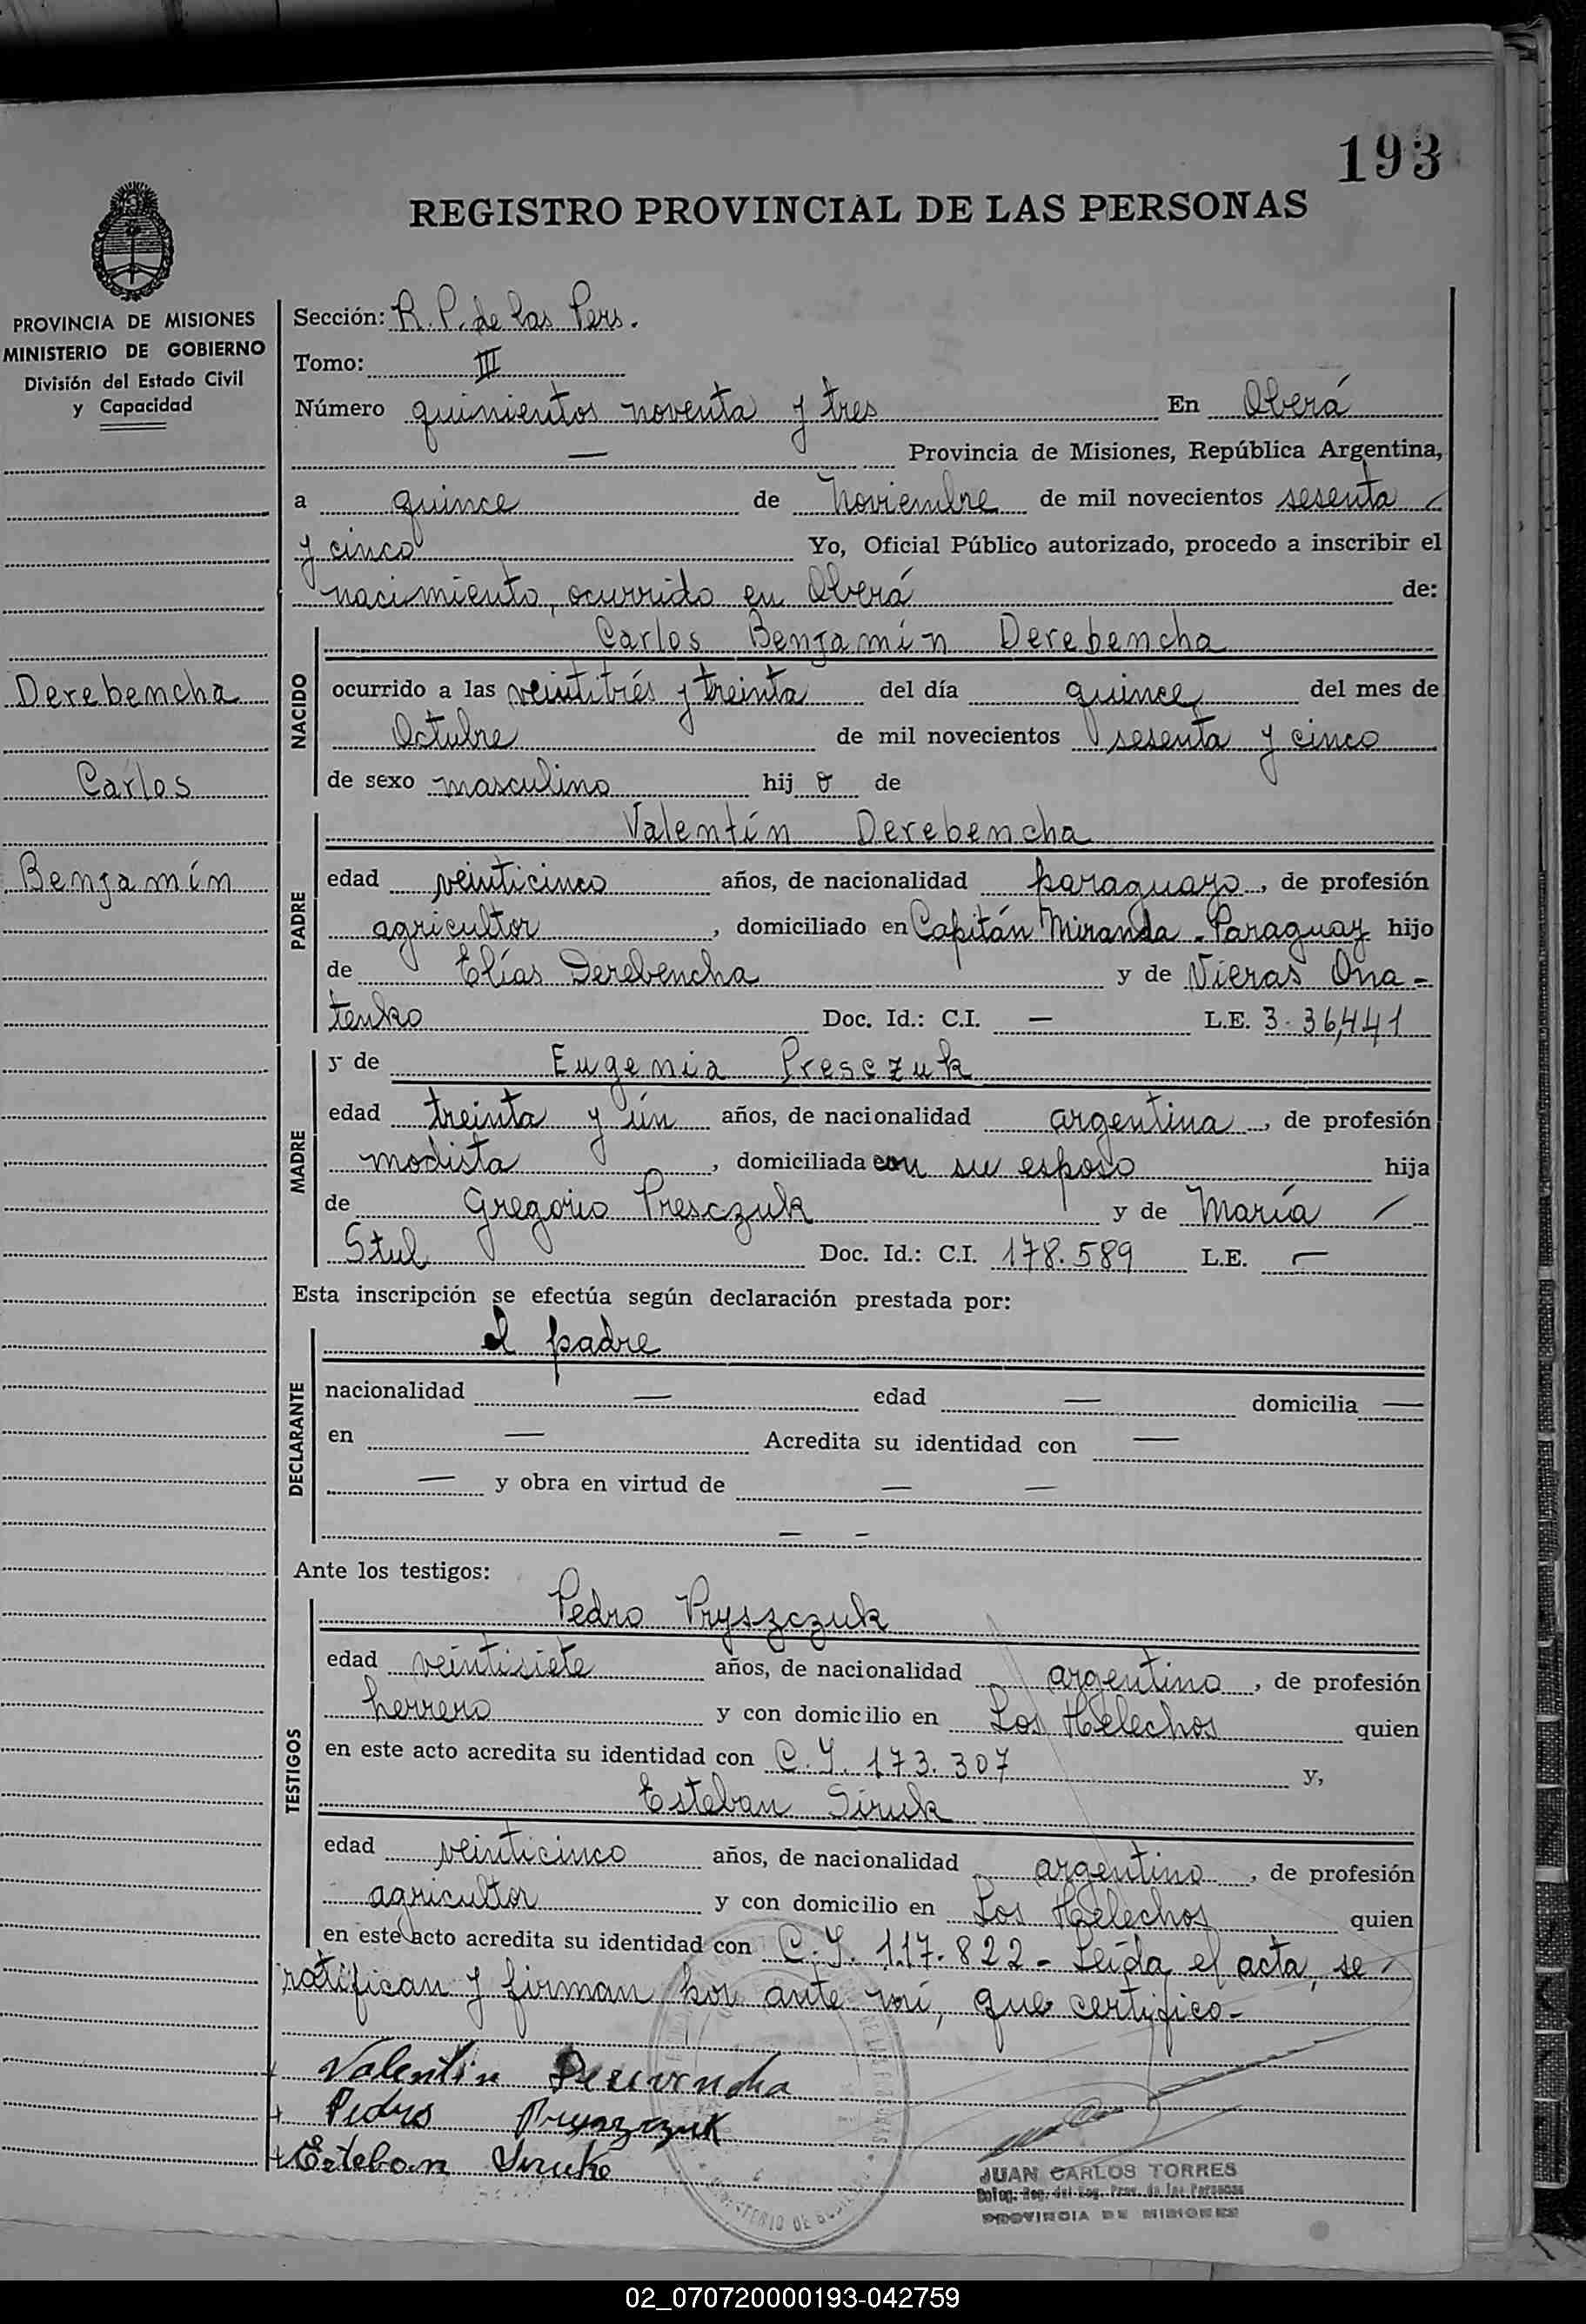 193
REGISTRO PROVINCIAL DE LAS PERSONAS
PROVINCIA DE MISIONES
MINISTERIO DE GOBIERNO
División del Estado Civil
y Capacidad
Derebencha
Carlos
Benjamín
Sección: R. P. de las Pers.
Tomo: III
Número quinientos noventa y tres En Oberá
— Provincia de Misiones, República Argentina,
a quince de Noviembre de mil novecientos sesenta
y cinco Yo, Oficial Público autorizado, procedo a inscribir el
nacimiento, ocurrido en Oberá de:
NACIDO
Carlos Benjamín Derebencha
ocurrido a las veintitrés y treinta del día quince del mes de
Octubre de mil novecientos sesenta y cinco
de sexo masculino hij o de
PADRE
Valentín Derebencha
edad veinticinco años, de nacionalidad paraguayo, de profesión
agricultor, domiciliado en Capitán Miranda - Paraguay hijo
de Elías Derebencha y de Vieras Ona-
tenko Doc. Id.: C.I. — L.E. 3.36,441
MADRE
y de Eugenia Presczuk
edad treinta y ún años, de nacionalidad argentina, de profesión
modista, domiciliada con su esposo hija
de Gregorio Presczuk y de María
Stul Doc. Id.: C.I. 178.589 L.E. —
Esta inscripción se efectúa según declaración prestada por:
DECLARANTE
el padre
nacionalidad — edad — domicilia —
en — Acredita su identidad con —
— y obra en virtud de — —
— -
Ante los testigos:
TESTIGOS
Pedro Pryszczuk
edad veintisiete años, de nacionalidad argentino, de profesión
herrero y con domicilio en Los Helechos quien
en este acto acredita su identidad con C.I. 173.307 y,
Esteban Siruk
edad veinticinco años, de nacionalidad argentino, de profesión
agricultor y con domicilio en Los Helechos quien
en este acto acredita su identidad con C.I. 117.822 - Leída el acta, se
ratifican y firman por ante mí, que certifico.-
Valentín
Pedro Pryszczuk
Esteban
JUAN CARLOS TORRES
Deleg. Reg. del Reg. Prov. de las Personas
PROVINCIA DE MISIONES
02_070720000193-042759